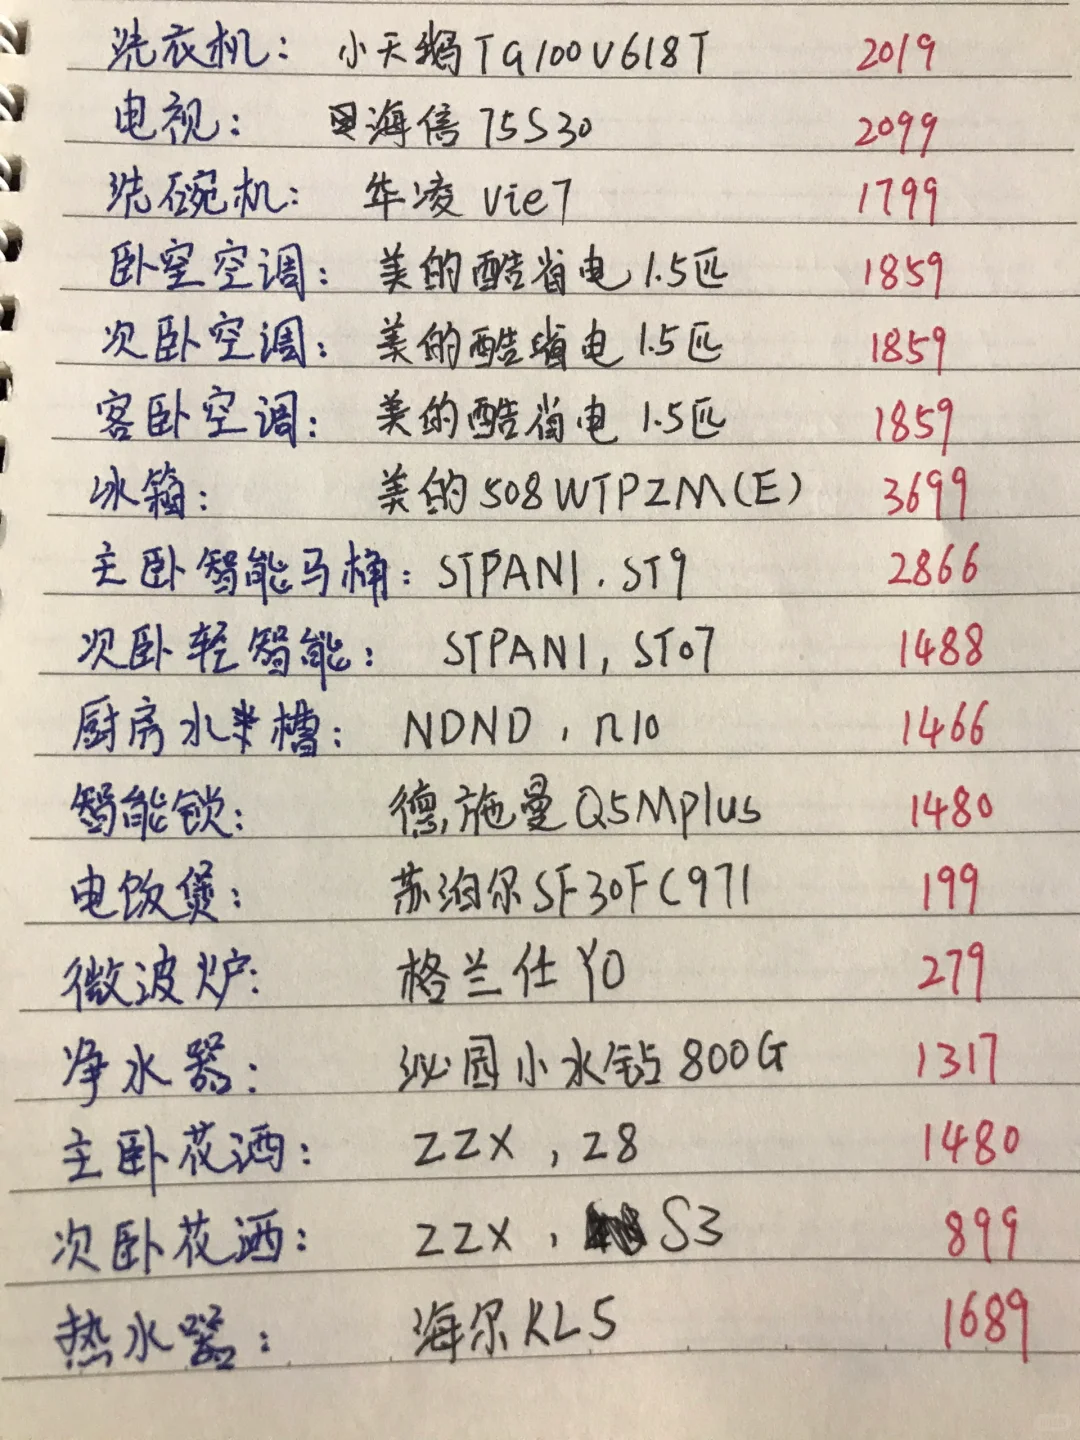 洗衣机： 小天鹅TG100V618T 2019
电视： 海信75S30 2099
洗碗机： 华凌Vie7 1799
卧室空调： 美的酷省电1.5匹 1859
次卧空调： 美的酷省电1.5匹 1859
客卧空调： 美的酷省电1.5匹 1859
冰箱： 美的508WTPZM(E) 3699
主卧智能马桶： STPAN1.ST9 2866
次卧轻智能： STPAN1, ST07 1488
厨房水槽： NDND, n10 1466
智能锁： 德施曼Q5Mplus 1480
电饭煲： 苏泊尔SF30FC971 199
微波炉： 格兰仕Y0 279
净水器： 沁园小水钻800G 1317
主卧花洒： ZZX, Z8 1480
次卧花洒： ZZX, S3 899
热水器： 海尔KL5 1689